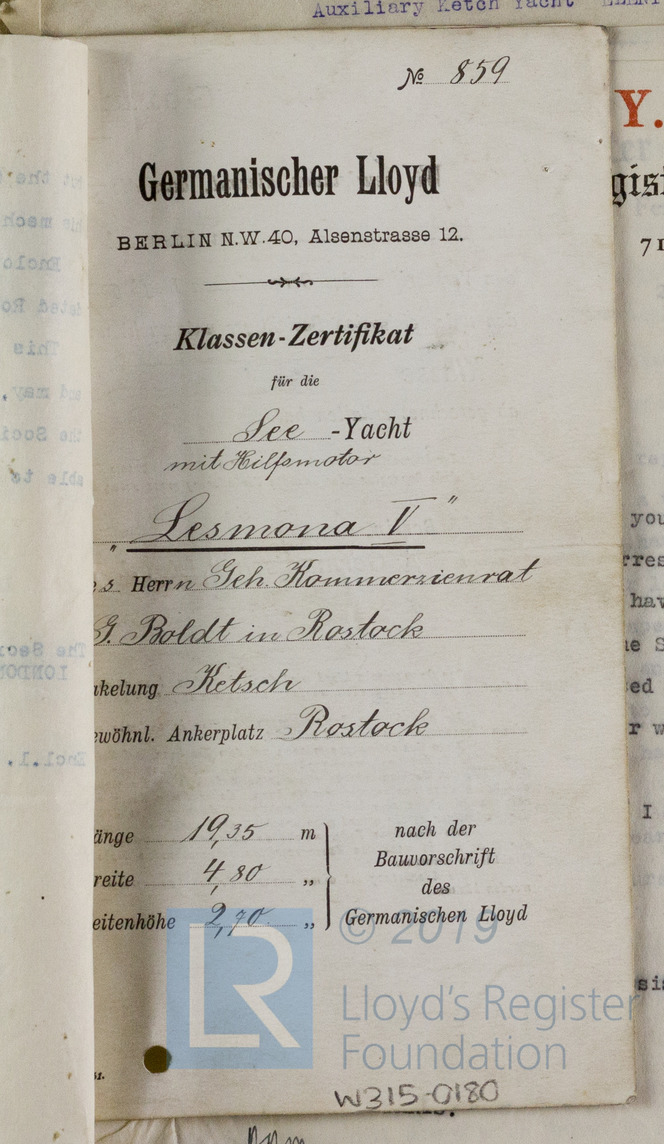 Auxiliary Ketch Yacht
№ 859
Germanischer Lloyd
BERLIN N.W.40, Alsenstrasse 12.
Klassen-Zertifikat
für die
See -Yacht
mit Hilfsmotor
"Lesmona V"
s Herrn Geh. Kommerzienrat
G. Boldt in Rostock
akelung Ketsch
ewöhnl. Ankerplatz Rostock
änge 19,35 m
reite 4,80 "
eitenhöhe 2,70 "
nach der
Bauvorschrift
des
Germanischen Lloyd
© 2019
LR
Lloyd's Register
Foundation
W315-0180
Y.
gist
71
you
rres
hav
e S
ed
r w
I